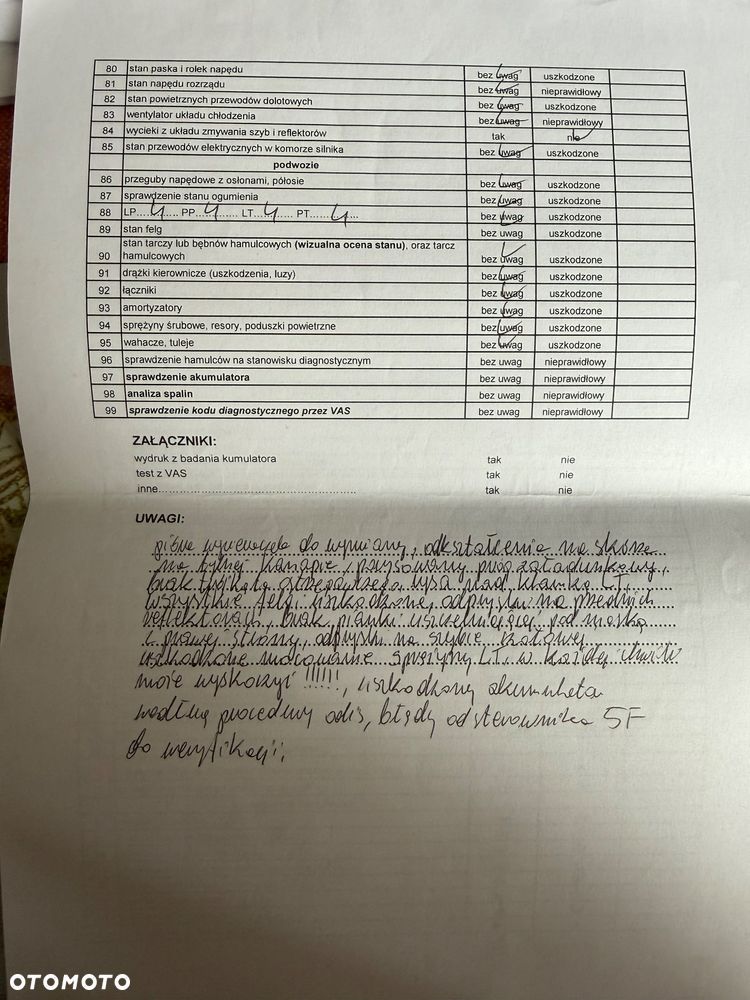 80 stan paska i rolek napędu bez uwag uszkodzone
81 stan napędu rozrządu bez uwag nieprawidłowy
82 stan powietrznych przewodów dolotowych bez uwag uszkodzone
83 wentylator układu chłodzenia bez uwag nieprawidłowy
84 wycieki z układu zmywania szyb i reflektorów tak nie
85 stan przewodów elektrycznych w komorze silnika bez uwag uszkodzone
podwozie
86 przeguby napędowe z osłonami, półosie bez uwag uszkodzone
87 sprawdzenie stanu ogumienia bez uwag uszkodzone
88 LP.....4..... PP....4....... LT....4.... PT......4... bez uwag uszkodzone
89 stan felg bez uwag uszkodzone
90 stan tarczy lub bębnów hamulcowych (wizualna ocena stanu), oraz tarcz hamulcowych bez uwag uszkodzone
91 drążki kierownicze (uszkodzenia, luzy) bez uwag uszkodzone
92 łączniki bez uwag uszkodzone
93 amortyzatory bez uwag uszkodzone
94 sprężyny śrubowe, resory, poduszki powietrzne bez uwag uszkodzone
95 wahacze, tuleje bez uwag uszkodzone
96 sprawdzenie hamulców na stanowisku diagnostycznym bez uwag nieprawidłowy
97 sprawdzenie akumulatora bez uwag nieprawidłowy
98 analiza spalin bez uwag nieprawidłowy
99 sprawdzenie kodu diagnostycznego przez VAS bez uwag nieprawidłowy
ZAŁĄCZNIKI:
wydruk z badania kumulatora tak nie
test z VAS tak nie
inne................................................ tak nie
UWAGI:
do wymiany, odkształcenia na skórze
na tylnej kanapie, porysowany próg załadunkowy,
brak trójkąta ostrzegawczego, rysa nad klamką LT,
wszystkie felgi uszkodzone, odpryski na przednich
reflektorach, brak pianki uszczelniającej pod maską
z prawej strony, odprysk na szybie czołowej,
uszkodzone mocowanie sprężyny LT. w każdej chwili
może wyskoczyć !!!!!!, uszkodzony akumulator
według procedury odis, błędy od sterownika 5F
do weryfikacji,
OTOMOTO